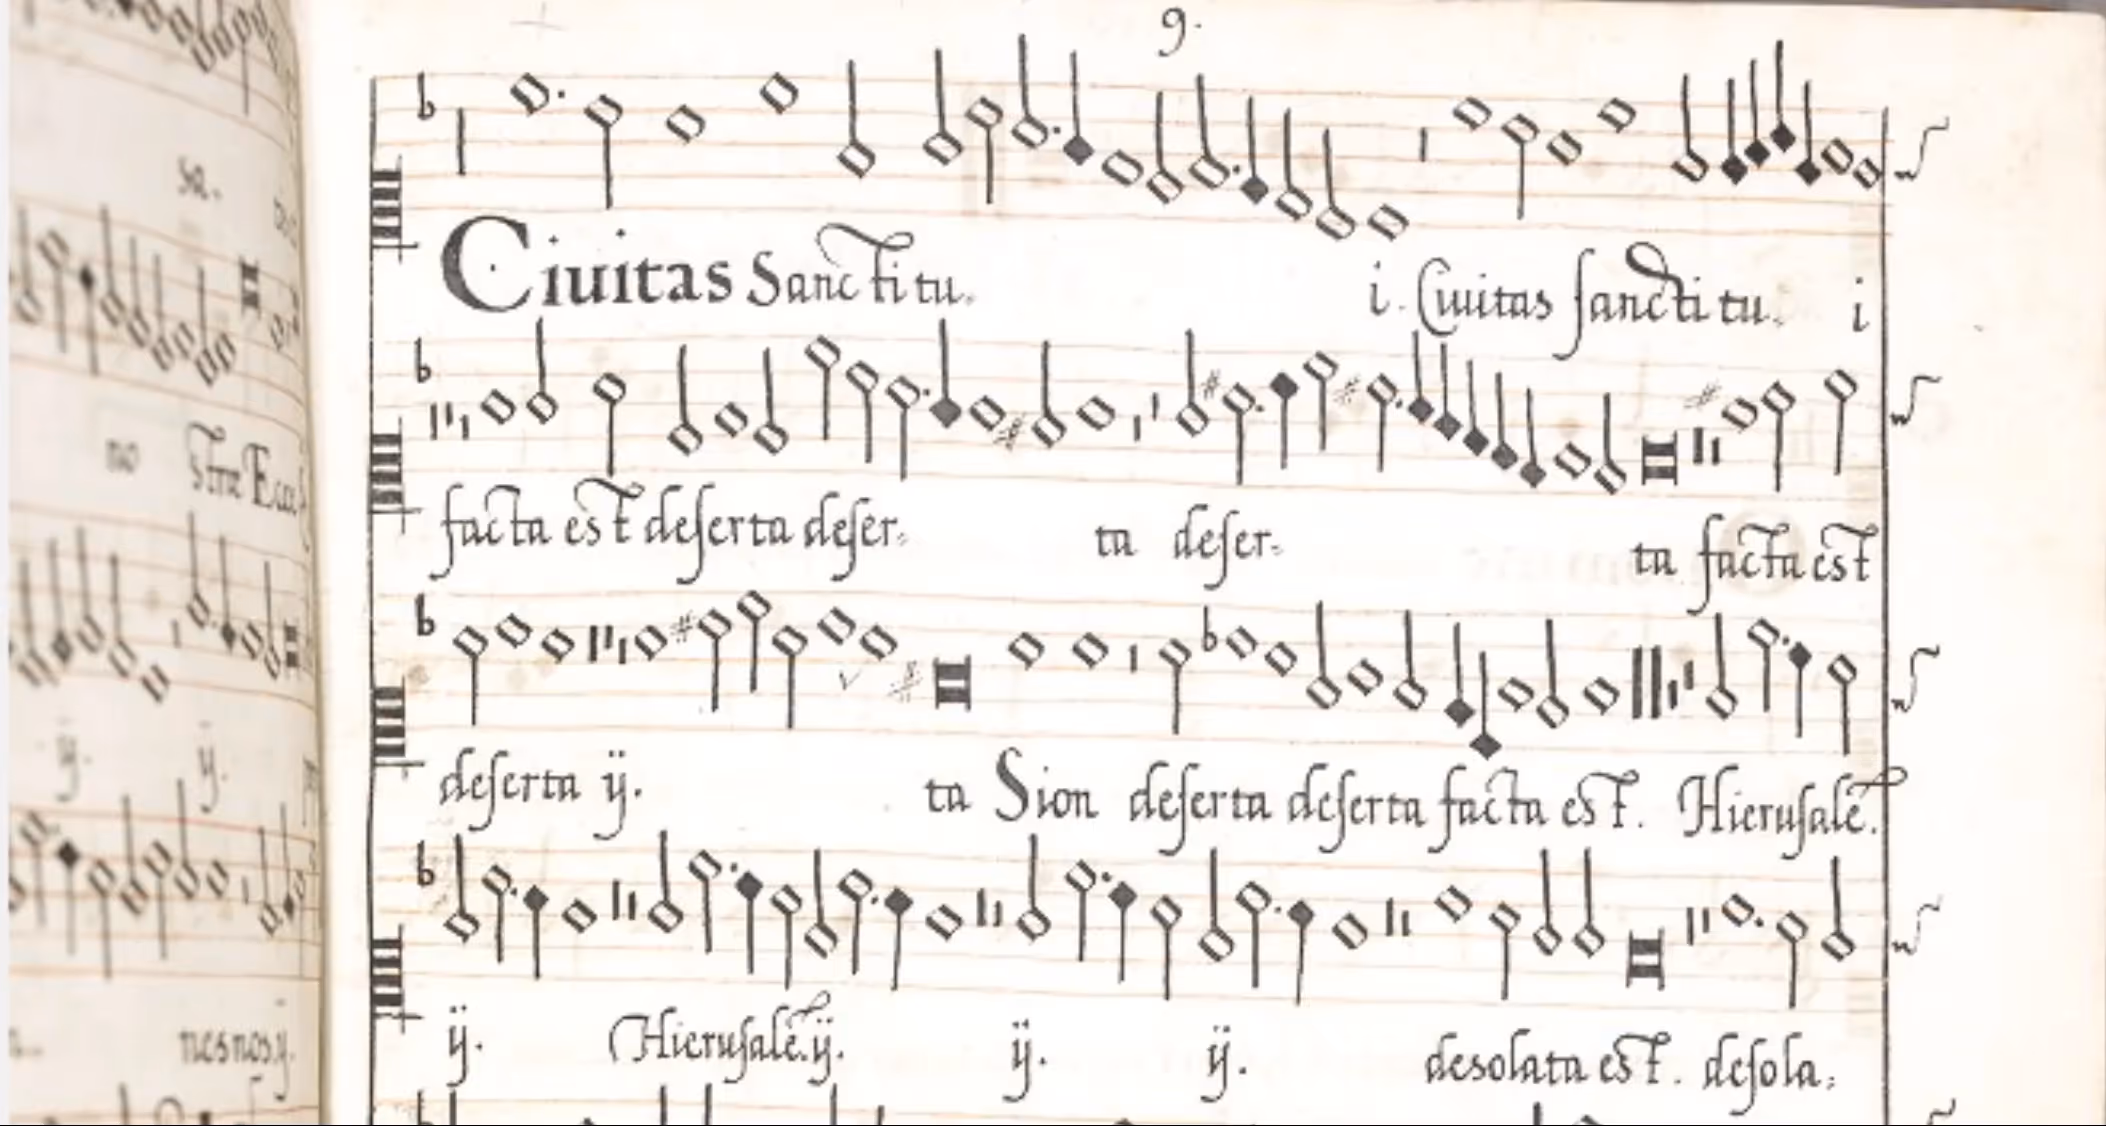 9.
Ciuitas Sancti tu. i. Ciuitas sancti tu. i
facta est deserta deser. ta deser. ta facta est
deserta ij. ta Sion deserta deserta facta est. Hierusalẽ.
ij. Hierusalẽ. ij. ij. ij. desolata est. desola.
sa.
no
ij. ij.
nes nos ij.